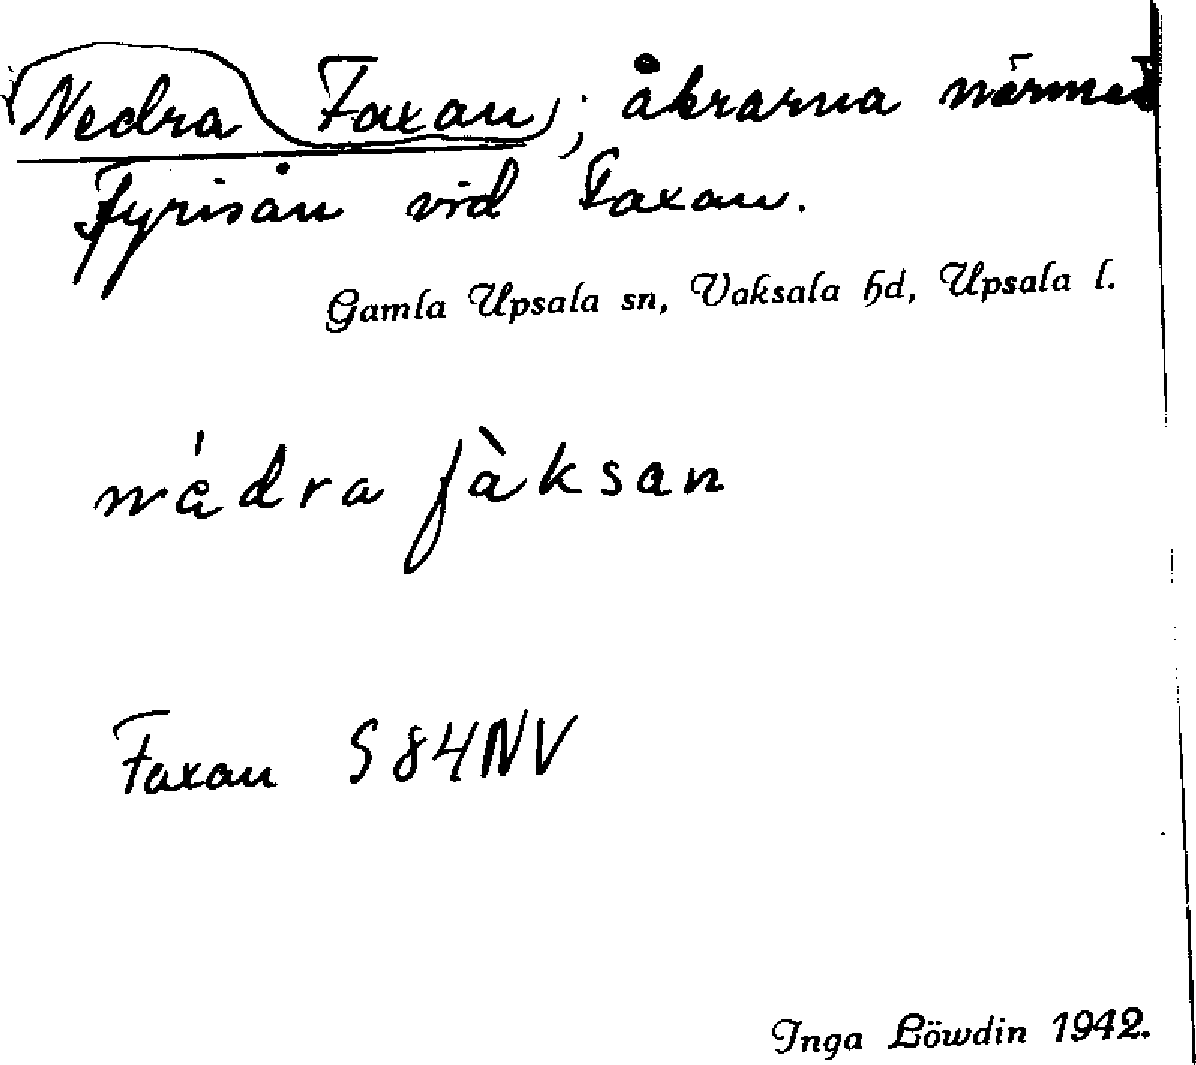 Nedra Faxan; åkrarna närmast
Fyrisån vid Faxan.
Gamla Upsala sn, Vaksala hd, Upsala l.
nédra fàksan
Faxan S84NV
Inga Löwdin 1942.